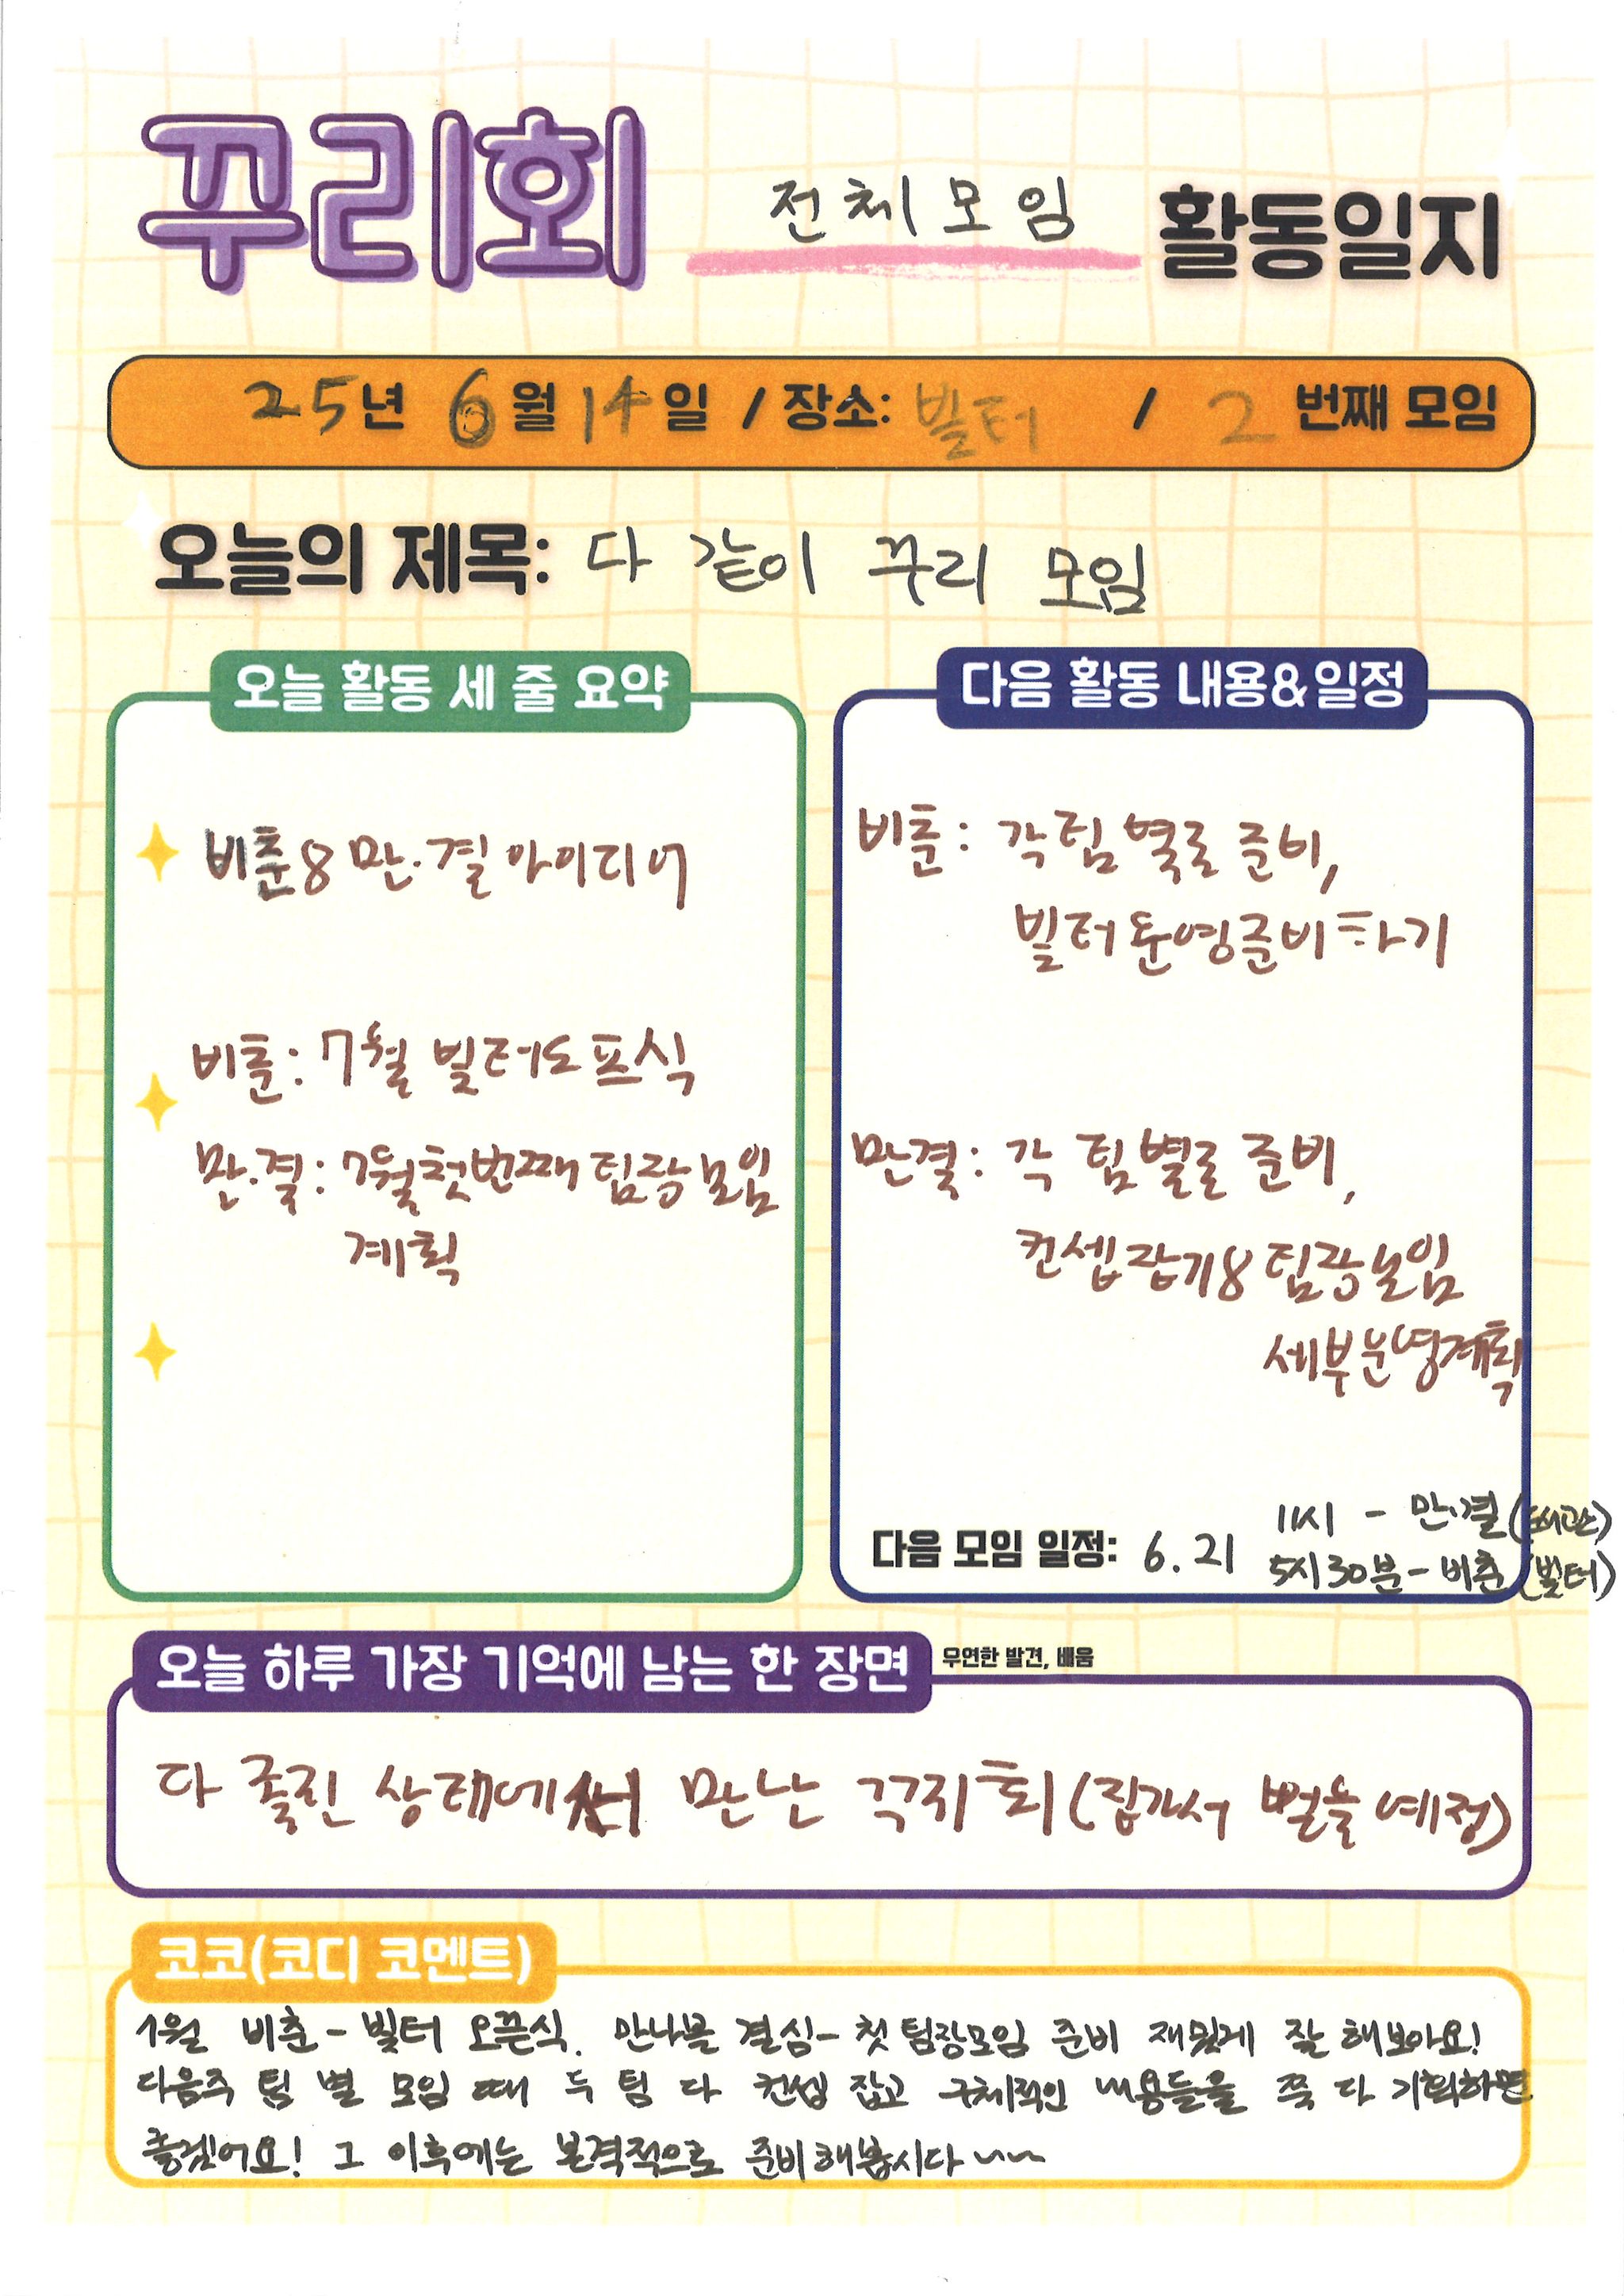 꾸리회 전체모임 활동일지
25년 6월 14일 / 장소: 빌터 / 2 번째 모임
오늘의 제목: 다 같이 꾸리 모임
오늘 활동 세 줄 요약
비춘&만·결 아이디어
비춘: 7월 빌터오픈식
만·결: 7월 첫번째 팀장모임
계획
다음 활동 내용&일정
비춘: 각 팀 별로 준비,
빌터 운영준비하기
만결: 각 팀별로 준비,
컨셉잡기& 팀장모임
세부운영계획
다음 모임 일정: 6.21
11시 - 만·결
5시30분 - 비춘 (빌터)
오늘 하루 가장 기억에 남는 한 장면 우연한 발견, 배움
다 졸린 상태에서 만난 꾸리회 (집가서 뻗을 예정)
코코(코디 코멘트)
7월 비춘 - 빌터 오픈식. 만나볼 결심 - 첫 팀장모임 준비 재밌게 잘 해보아요!
다음주 팀 별 모임 때 두 팀 다 컨셉 잡고 구체적인 내용들을 쭉 다 기획하면
좋겠어요! 그 이후에는 본격적으로 준비해봅시다~~